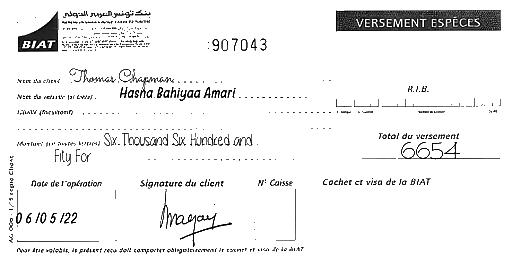 بنك تونس العربي الدولي
BIAT
VERSEMENT ESPÈCES
907043
Nom du client Thomas Chapman
Nom du remettant (si tiers) Hasna Bahiyaa Amari
R.I.B.
Libellé (facultatif)
Montant (en toutes lettres) Six Thousand Six Hundred and
Fity For
Total du versement
6654
Date de l'opération Signature du client N° Caisse Cachet et visa de la BIAT
06/05/22
Pour être valable, le présent reçu doit comporter obligatoirement le cachet et visa de la BIAT